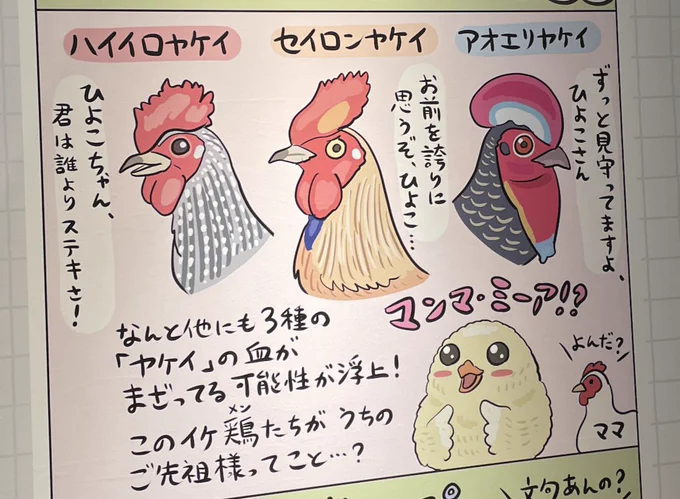 ハイイロヤケイ
セイロンヤケイ
アオエリヤケイ
ひよこちゃん、
君は誰よりステキさ!
お前を誇りに
思うぞ、ひよこ…
ずっと見守ってますよ、
ひよこさん
マンマ・ミーア!?
なんと他にも3種の
「ヤケイ」の血が
まざってる可能性が浮上!
メン
このイケ鶏たちがうちの
ご先祖様ってこと…?
よんだ?
ママ
文句あんの?